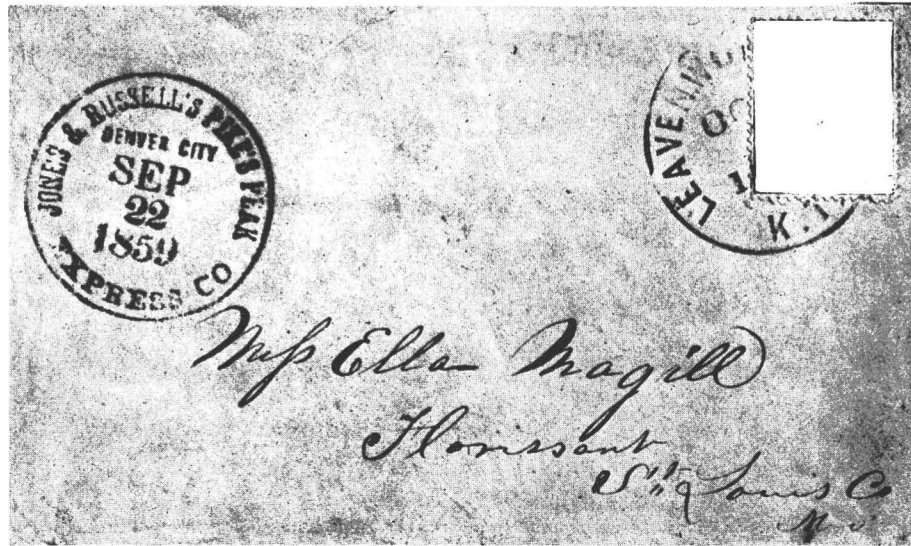 JONES & RUSSELL'S PIKE'S PEAK
DENVER CITY
SEP
22
1859
EXPRESS CO
K.T
Miss Ella Magill
Florissant
St Louis Co
Mo